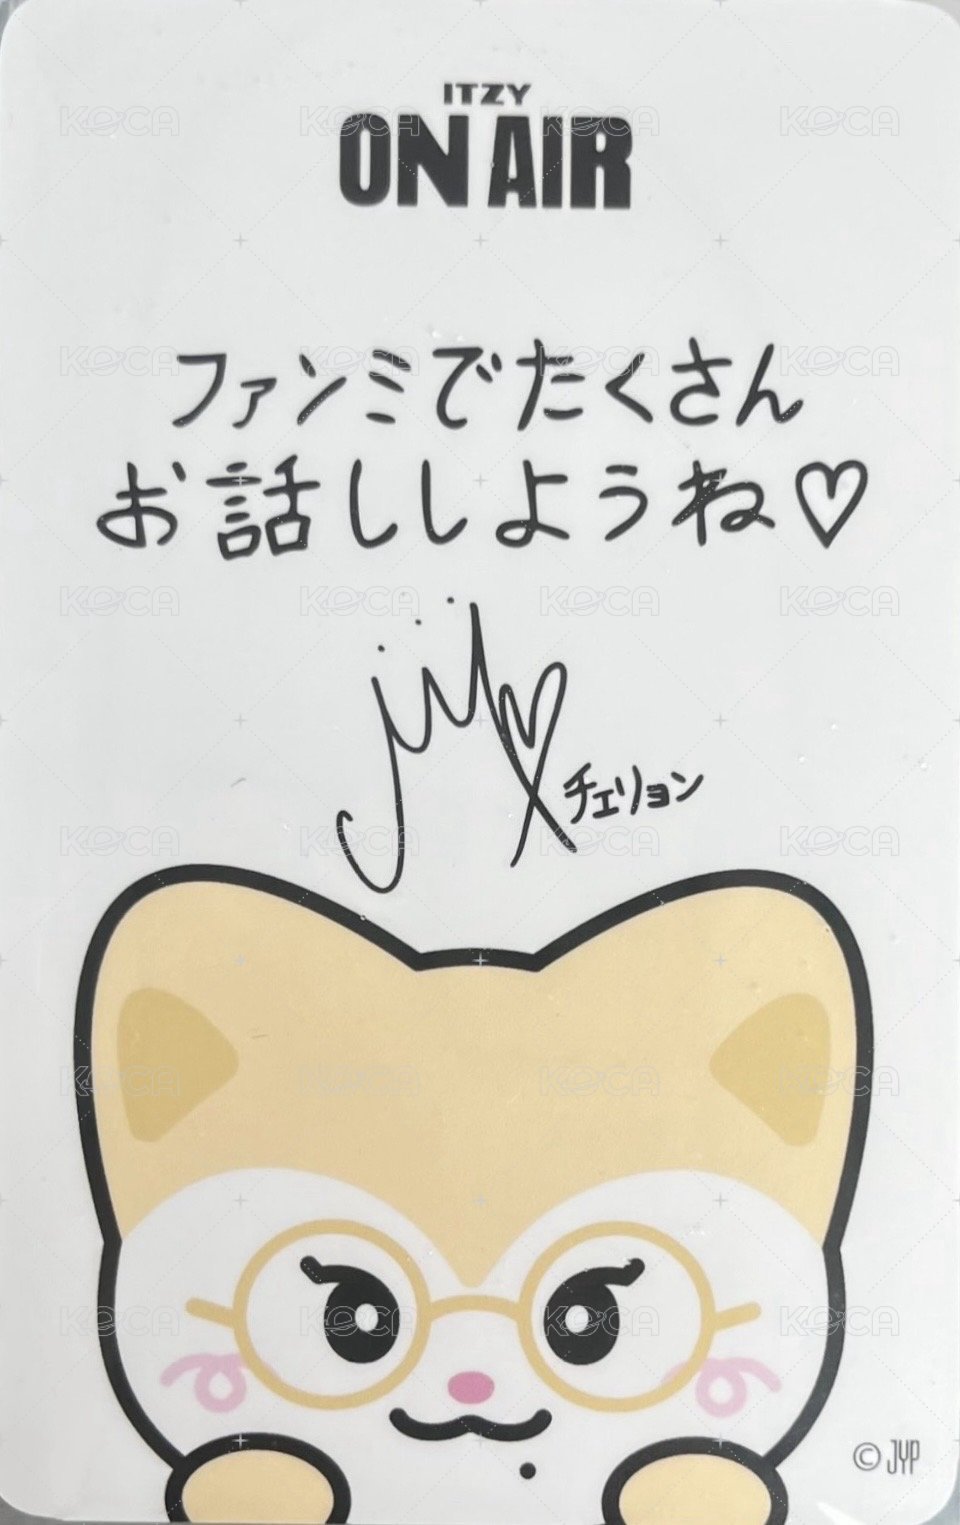 ITZY
ON AIR
ファンミでたくさん
お話ししようね♡
チェリョン
© JYP
KOCA